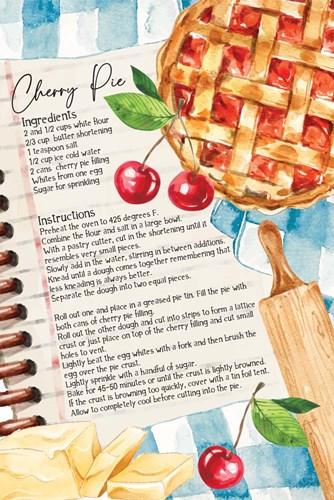 Cherry Pie
Ingredients
2 and 1/2 cups white flour
2/3 cup butter shortening
1 teaspoon salt
1/2 cup ice cold water
2 cans cherry pie filling
Whites from one egg
Sugar for sprinkling
Instructions
Preheat the oven to 425 degrees F.
Combine the flour and salt in a large bowl.
With a pastry cutter, cut in the shortening until it
resembles very small pieces.
Slowly add in the water, stirring in between additions.
Knead until a dough comes together remembering that
less kneading is always better.
Separate the dough into two equal pieces.
Roll out one and place in a greased pie tin. Fill the pie with
both cans of cherry pie filling.
Roll out the other dough and cut into strips to form a lattice
crust or just place on top of the cherry filling and cut small
holes to vent.
Lightly beat the egg whites with a fork and then brush the
egg over the pie crust.
Lightly sprinkle with a handful of sugar.
Bake for 45-50 minutes or until the crust is lightly browned.
If the crust is browning too quickly, cover with a tin foil tent.
Allow to completely cool before cutting into the pie.